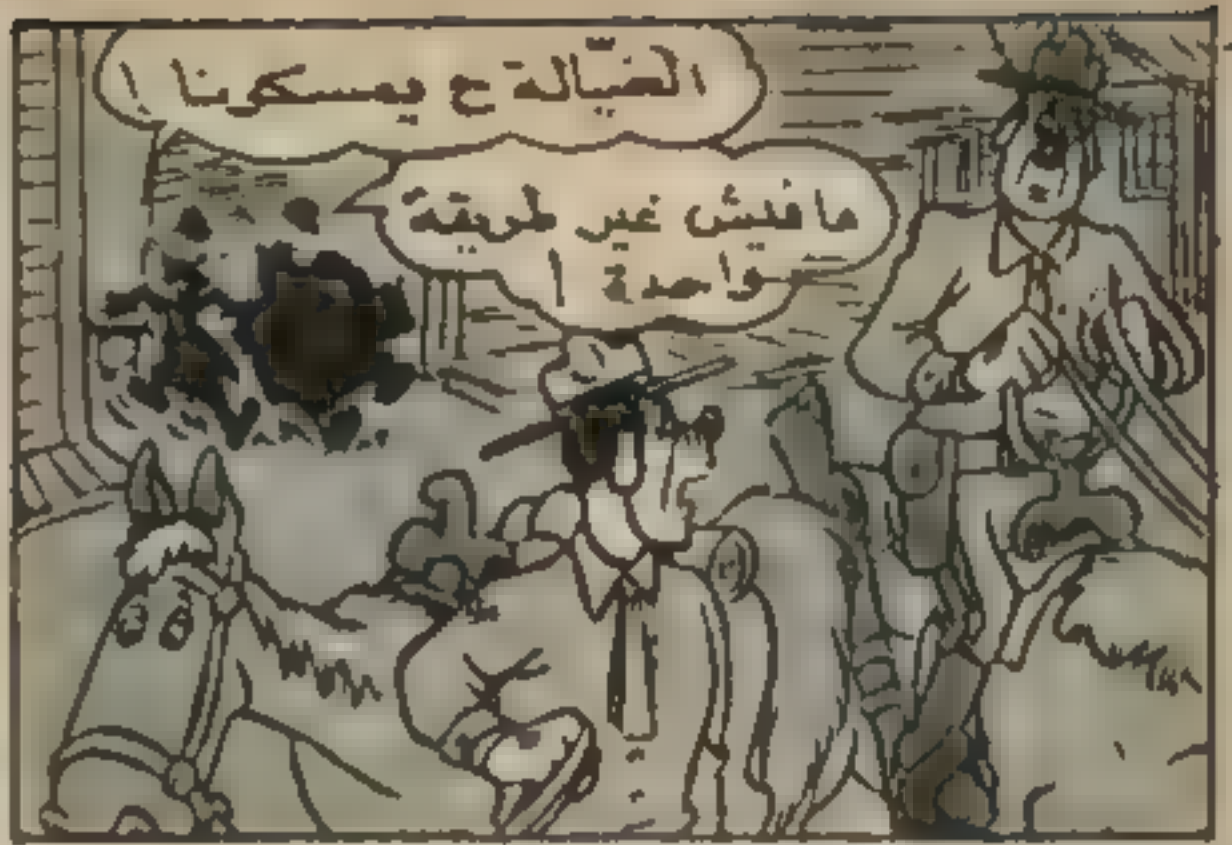 الخيّالة ح يمسكونا !
ما فيش غير طريقة
واحدة !